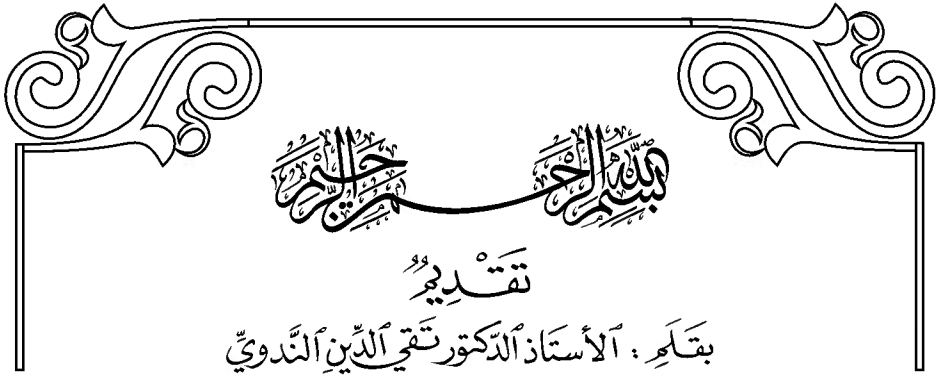 بسم الله الرحمن الرحيم
تَقْدِيمٌ
بقَلَمِ : الأستَاذ الدّكتور تَقي الدِّينِ النَّدويِّ